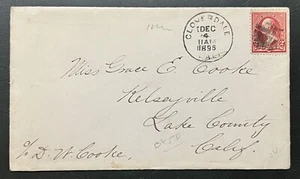 CLOVERDALE
DEC
4
11AM
1895
CAL.
Miss Grace E. Cooke
Kelseyville
Lake County
Calif.
c/o D. W. Cooke,